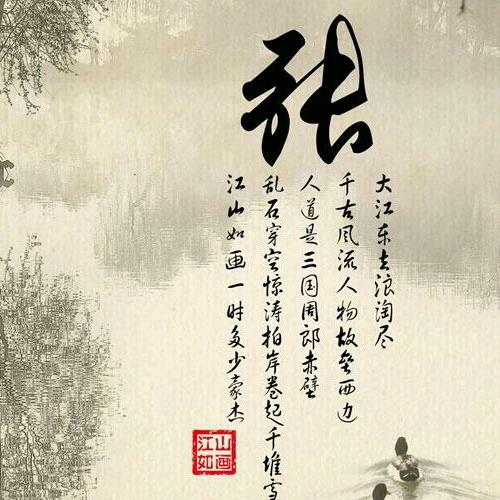 张
大江东去浪淘尽
千古风流人物故垒西边
人道是三国周郎赤壁
乱石穿空惊涛拍岸卷起千堆雪
江山如画一时多少豪杰
江山如画